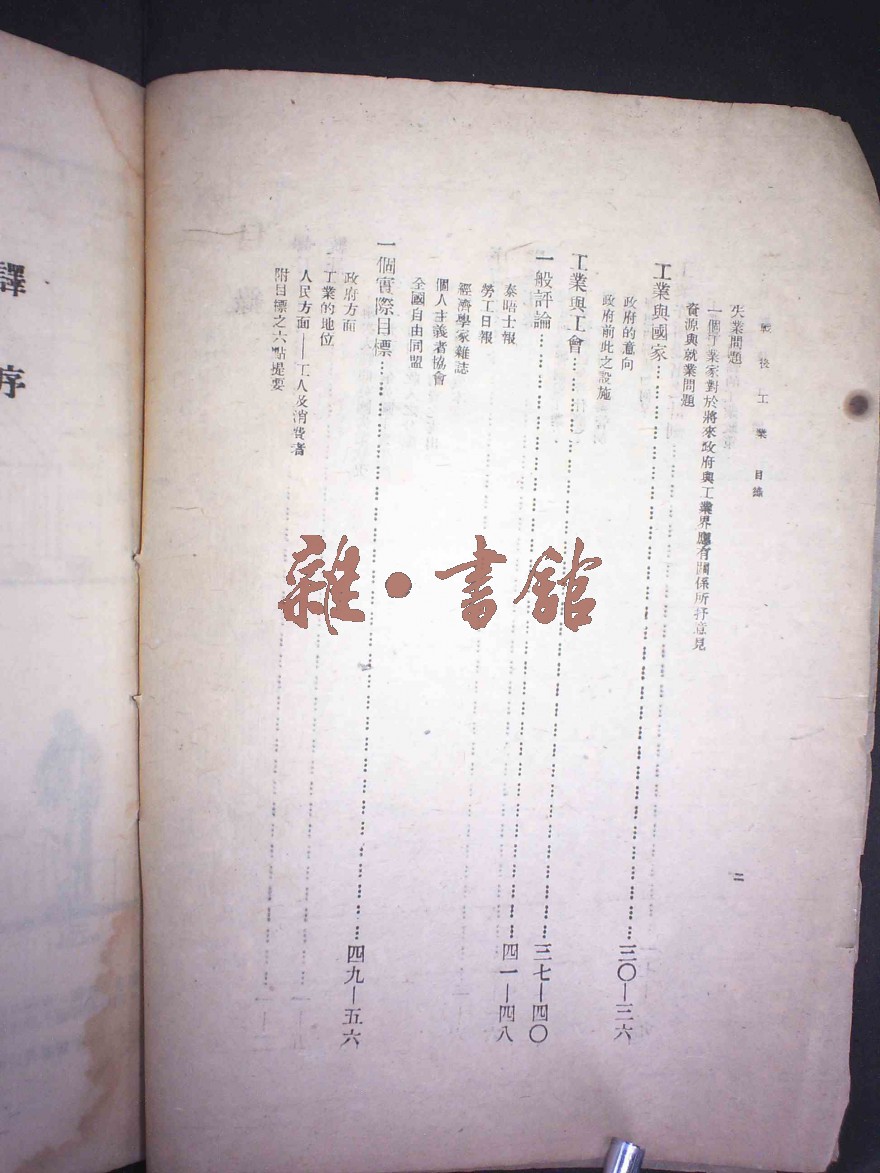 戰後工業 目錄
二
失業問題
一個工業家對於將來政府與工業界應有關係所抒意見
資源與就業問題
工業與國家……三〇—三六
政府的意向
政府前此之設施
工業與工會……三七—四〇
一般評論……四一—四八
泰晤士報
勞工日報
經濟學家雜誌
個人主義者協會
全國自由同盟
一個實際目標……四九—五六
政府方面
工業的地位
人民方面——工人及消費者
附目標之六點提要
譯序
雜·書館